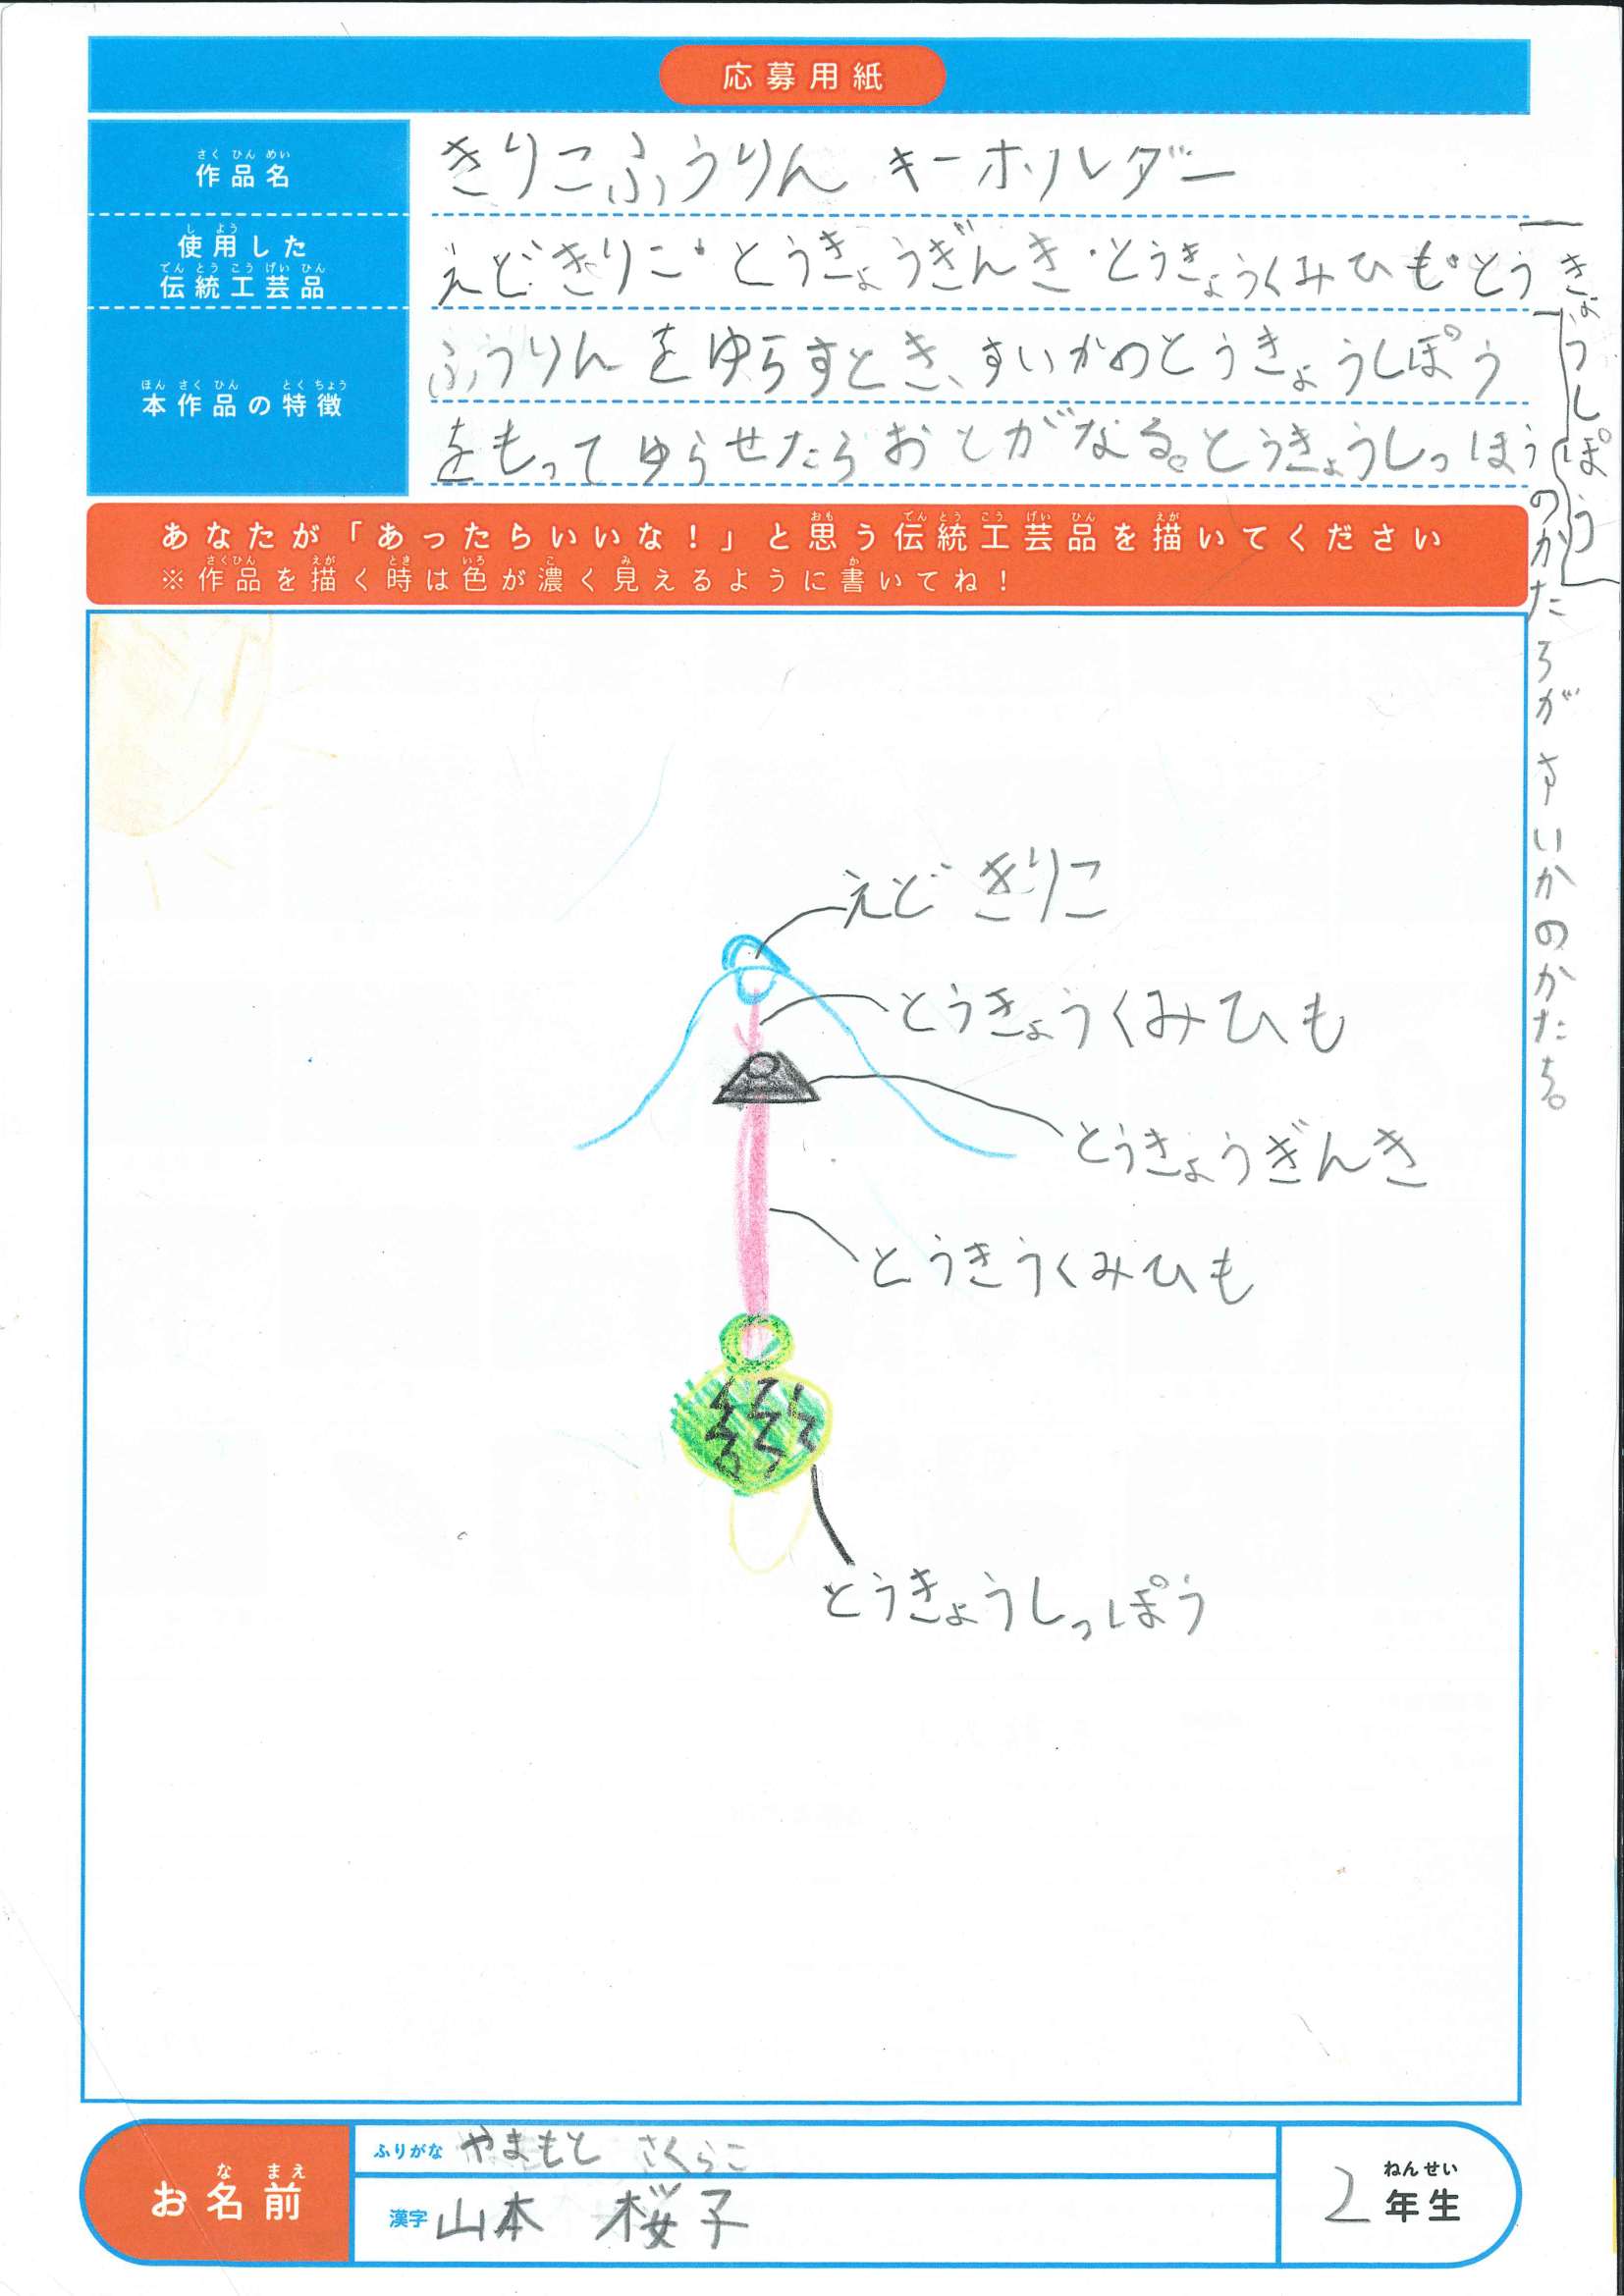 応募用紙
さくひんめい
作品名
きりこふうりん キーホルダー
しよう
使用した
でんとうこうげいひん
伝統工芸品
えどきりこ・とうきょうぎんき・とうきょうくみひも・とうきょうしぽう
ほんさくひん とくちょう
本作品の特徴
ふうりんをゆらすとき、すいかのとうきょうしぽう
をもってゆらせたらおとがなる。とうきょうしっぽうのかたちがすいかのかたち。
おも でんとうこうげいひん えが
あなたが「あったらいいな!」と思う伝統工芸品を描いてください
さくひん えが とき いろ こ み か
※作品を描く時は色が濃く見えるように書いてね!
えどきりこ
とうきょうくみひも
とうきょうぎんき
とうきうくみひも
とうきょうしっぽう
なまえ
お名前
ふりがな やまもと さくらこ
漢字 山本 桜子
ねんせい
2年生